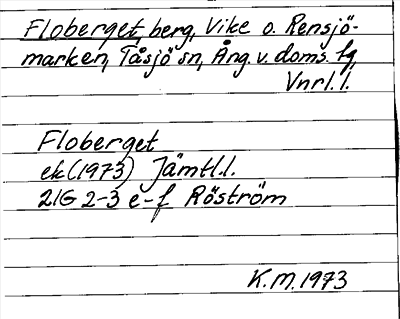 Floberget, berg, Vike o. Rensjö-
marken, Tåsjö sn, Ång. v. doms. fg,
Vnrl. l.
Floberget
ek (1973) Jämtl. l.
21G 2-3 e-f Röström
K.M. 1973